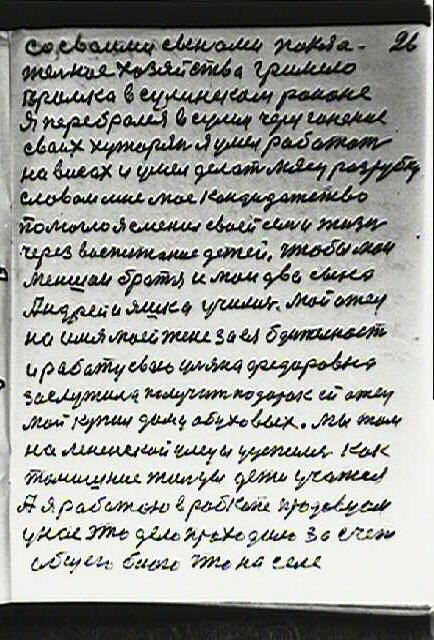 26
со своими свенами пакла-
жейное хозяйства гримело
громка в сулинском районе
Я перебрался в сулин через гонение
своих хуторян я умел работат
на висах и умел делат мяса разрубку
словом мне мое кондидатство
помогло я сменил своей семи жизн
через воспитание детей, чтобы мои
меншаи братя и мои два сына
Андрей и яшка училис. мой отец
на имя моей жене за ея должност
и работу свою федаровна
заслужила получит подарок ей отец
мой купил дом у обуховых. мы там
на лененской улеци ужилис как
то дети учатся
А я работаю в рабкопе продавцом
у нас это дело проходило за счет
общего что на селе